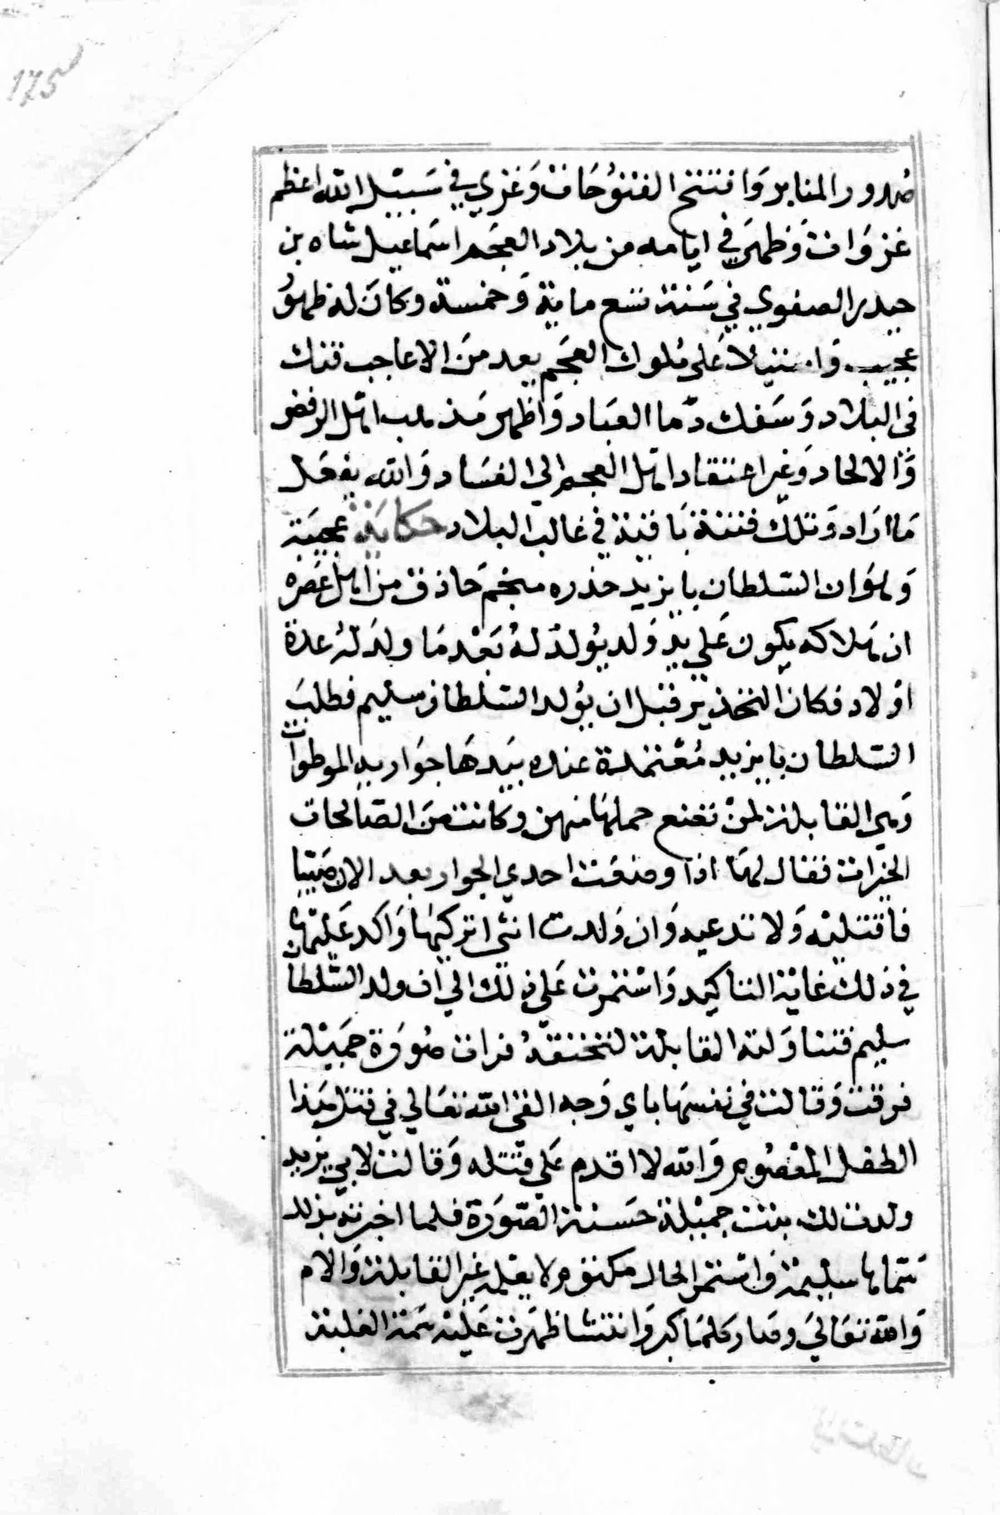 175
صدور المنابر وافتتح الفتوحات وغزي في سبيل الله اعظم
غزوات وظهر في ايامه من بلاد العجم اسماعيل شاه بن
حيدر الصفوي في سنة تسع ماية وخمسة وكان له ظهور
عجيب واستيلا علي ملوك العجم يعد من الاعاجب فتك
في البلاد وسفك دما العباد واظهر مذهب اهل الرفض
والالحاد وغير اعتقاد اهل العجم الي الفساد والله يفعل
ما اراد وتلك فتنة باقية في غالب البلاد حكاية عجيبة
وهو ان السلطان بايزيد حذره منجم حاذق من اهل عصره
ان هلاكه يكون علي يد ولد يولد له بعد ما ولد له عدة
اولاد فكان التحذير قبل ان يولد السلطان سليم فطلب
السلطان بايزيد معتمدة عنده بيدها جواريه الموطوات
وهي القابلة لمن تضع حملها منهن وكانت من الصالحات
الخيرات فقال لها اذا وضعت احدي الجوار بعد الان صبيا
فاقتليه ولا تدعيه وان ولدت انثي اتركيها واكد عليها
في ذلك غاية التاكيد واستمرت علي ذلك الي ان ولد السلطان
سليم فتناولته القابلة لتخنقه فرات صورة جميلة
فرقت وقالت في نفسها باي وجه القي الله تعالي في قتل هذا
الطفل المعصوم والله لا اقدم علي قتله وقالت لابي يزيد
ولدت لك بنت جميلة حسنة الصورة فلما اخبرته بذلك
سماها سليمة واستمر الحال مكتوم لا يعلمه غير القابلة والام
والله تعالي وصار كلما كبر وانتشا ظهرت عليه سمة الغلبة